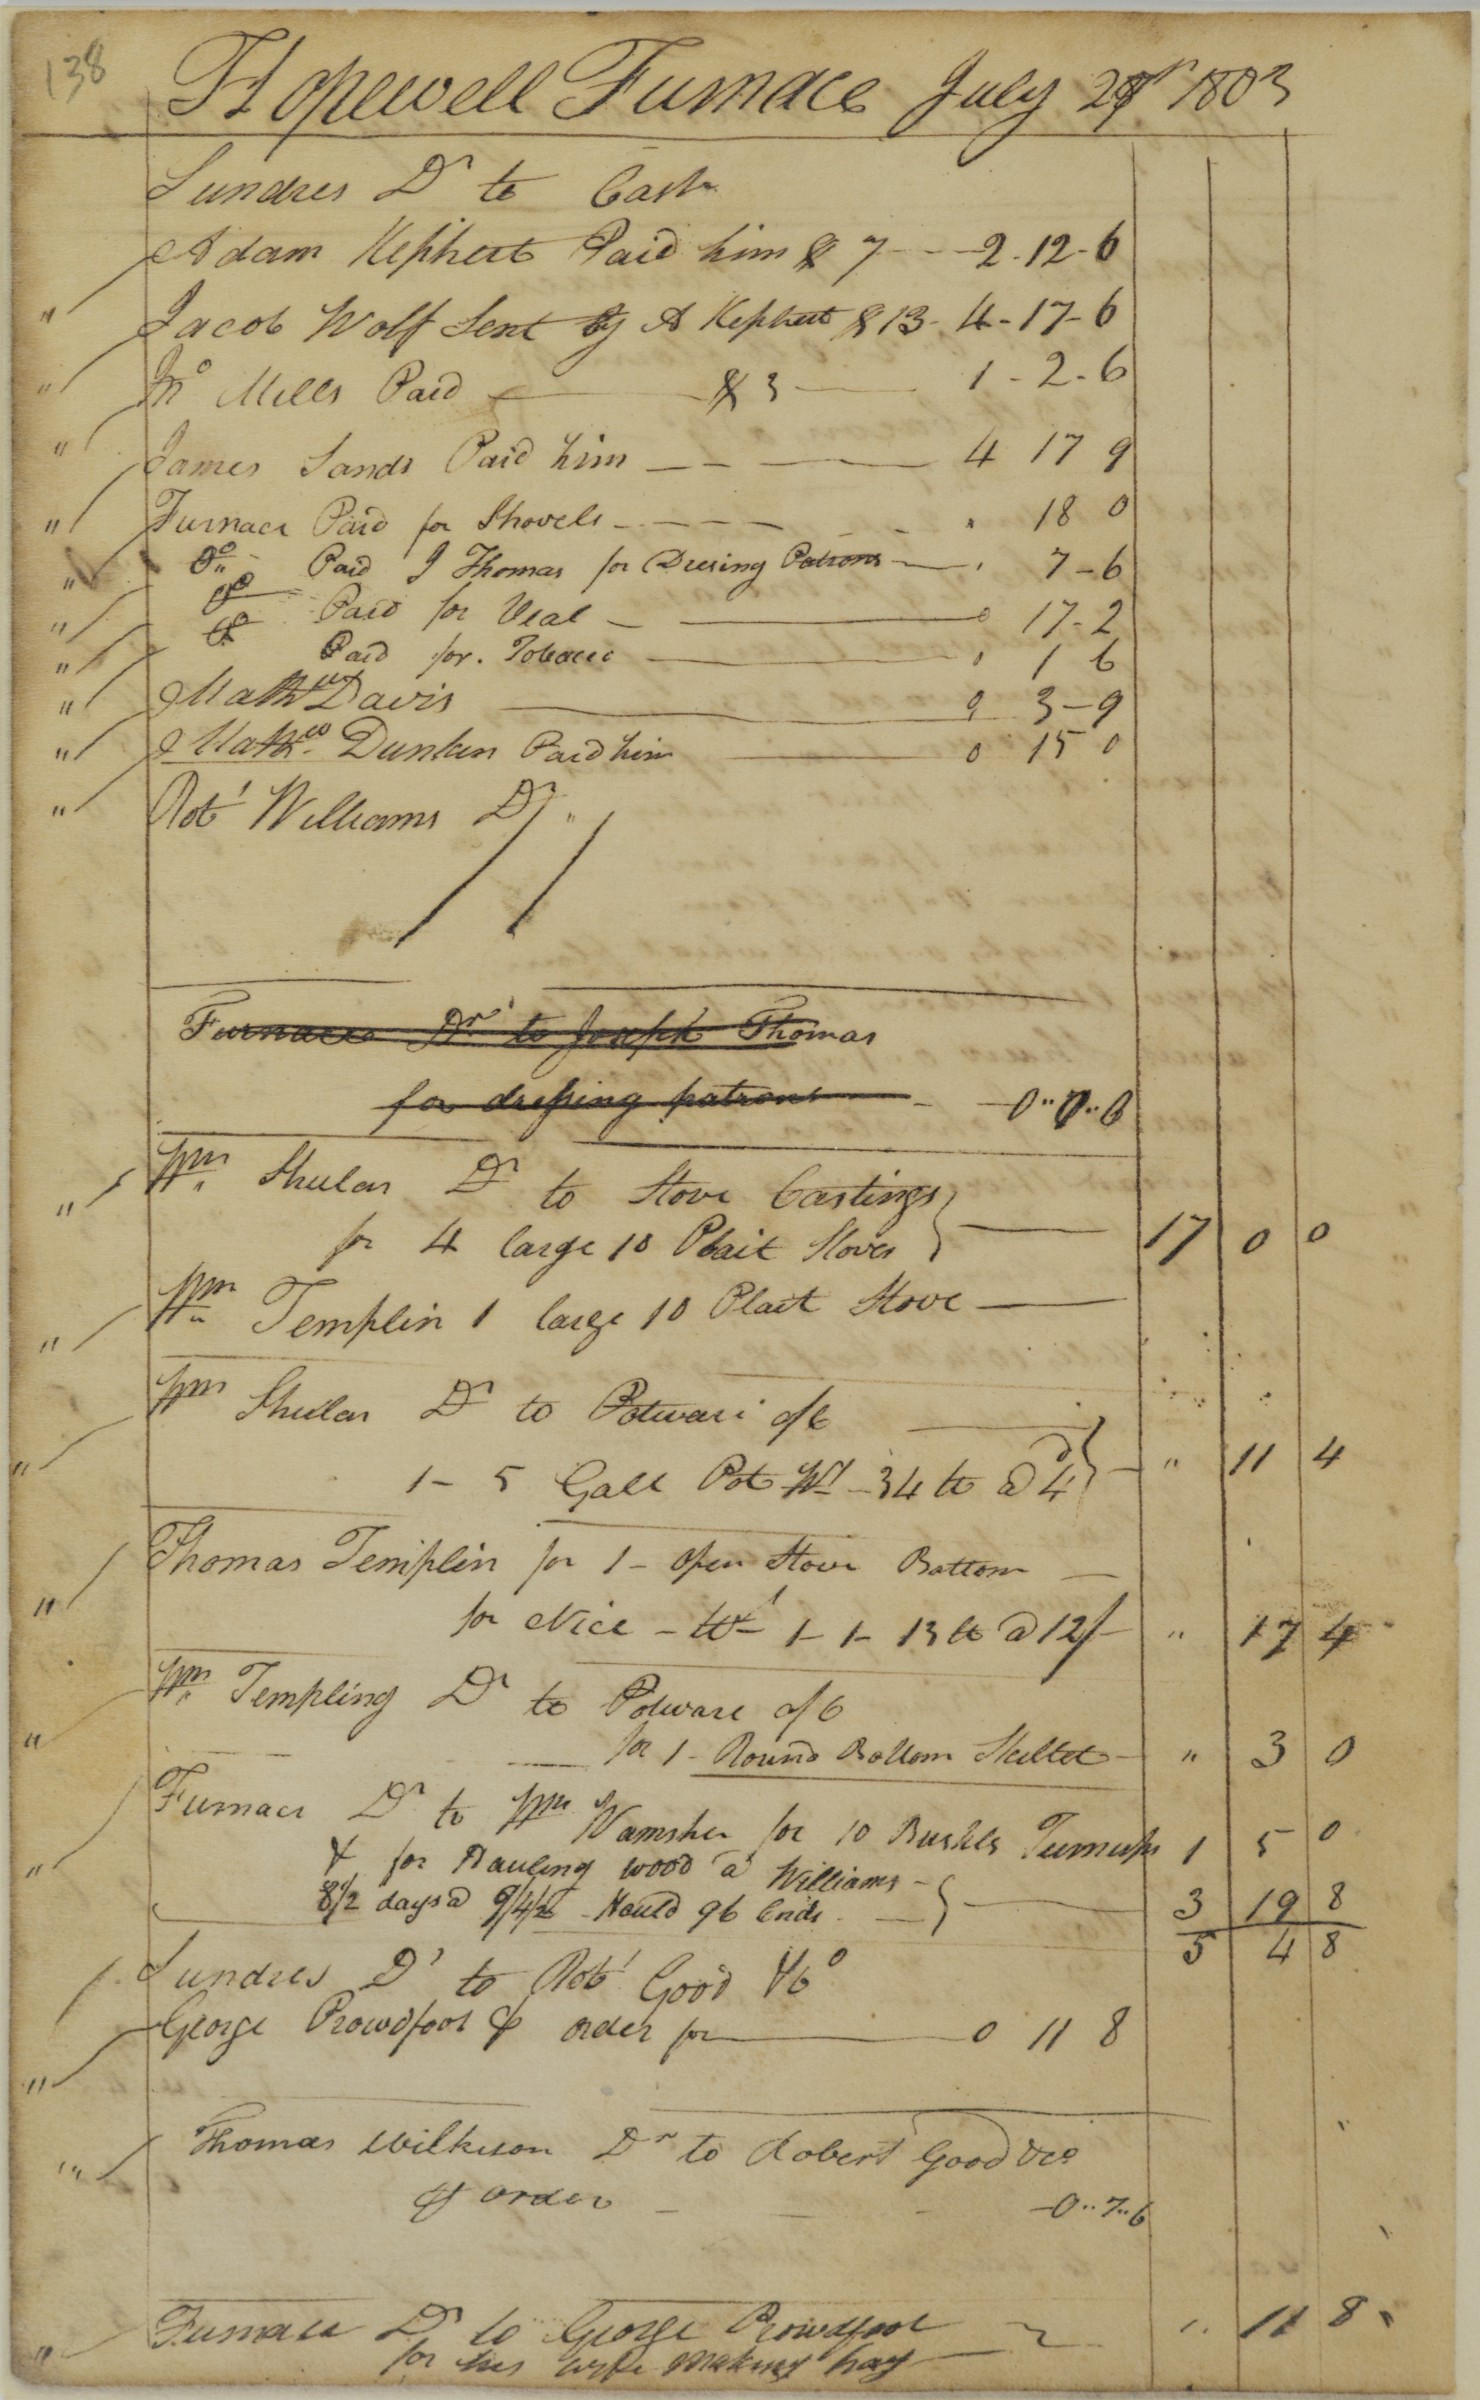 138
Hopewell Furnace July 1803
Sundres Dr to Cash
Adam Kephert Paid him $ 7 - - - 2-12-6
Jacob Wolf Sent by A Kephert $13- 4-17-6
Jno Mills Paid $ 3 1-2-6
James Sands Paid him 4 17 9
Furnace Paid for Shovels " 18 0
Do Paid J Thomas for Dresing Patrons " 7-6
Do Paid for Veal 0 17-2
Do Paid for Tobacco 0 1 6
Mathw Davis 3-9
Dunken Paid him 0 15 0
Robt Williams Dr
Furnace Dr to Joseph Thomas
for dressing patrons 0..7..6
Wm Shular Dr to Stove Castings
for 4 large 10 Plait Stoves 17 0 0
Wm Templin 1 large 10 Plait Stove
Wm Shular Dr to Potware of 6
1-5 Gall Pot Wt 34 lb @ 4d " 11 4
Thomas Templin for 1- Open Stove Bottom
for Nice - Wt 1-1-13 lb @ 12/- " 17 4
Wm Templing Dr to Potware of 6
for 1- Round Bottom Skillet " 3 0
Furnace Dr to Wm Wamsher for 10 Bushls Turnups 1 5 0
& for Hauling wood a Williams
8 1/2 days @ 9/4 1/2 Hauld 96 Cords 3 19 8
5 4 8
Sundres Dr to Robt Good & Co
George Prowdfoot order for 0 11 8
Thomas Wilkison Dr to Robert Good & Co
order 0..7..6
Furnace Dr to George Prowdfoot
for his wife making hay " 11 8